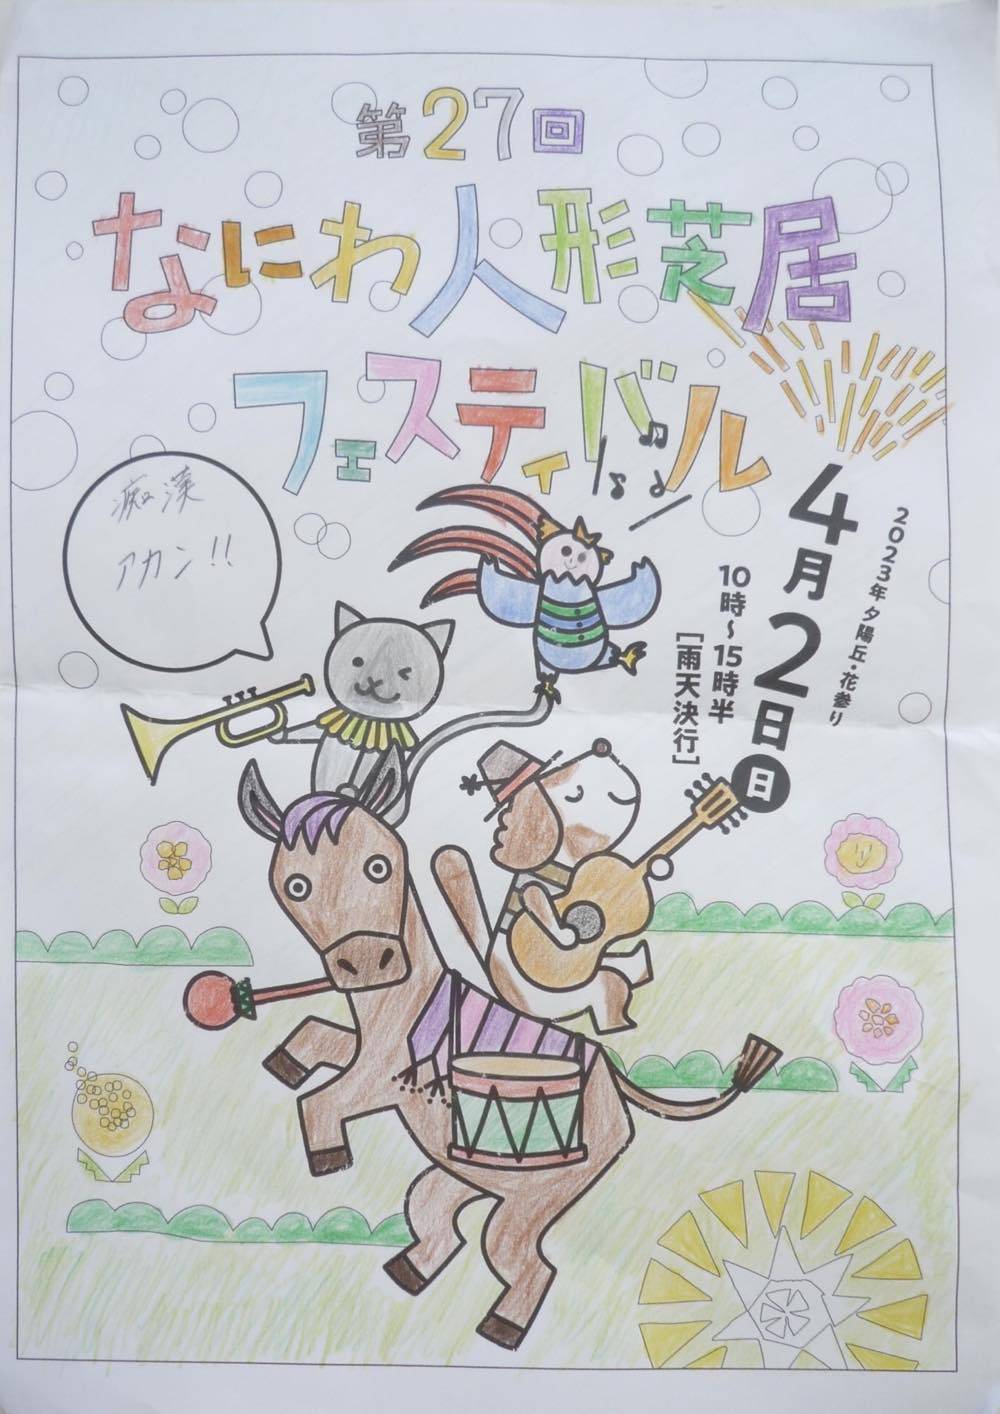 第27回
なにわ人形芝居
フェスティバル
2023年 夕陽丘・花参り
4月2日日
10時〜15時半
[雨天決行]
痴漢
アカン!!